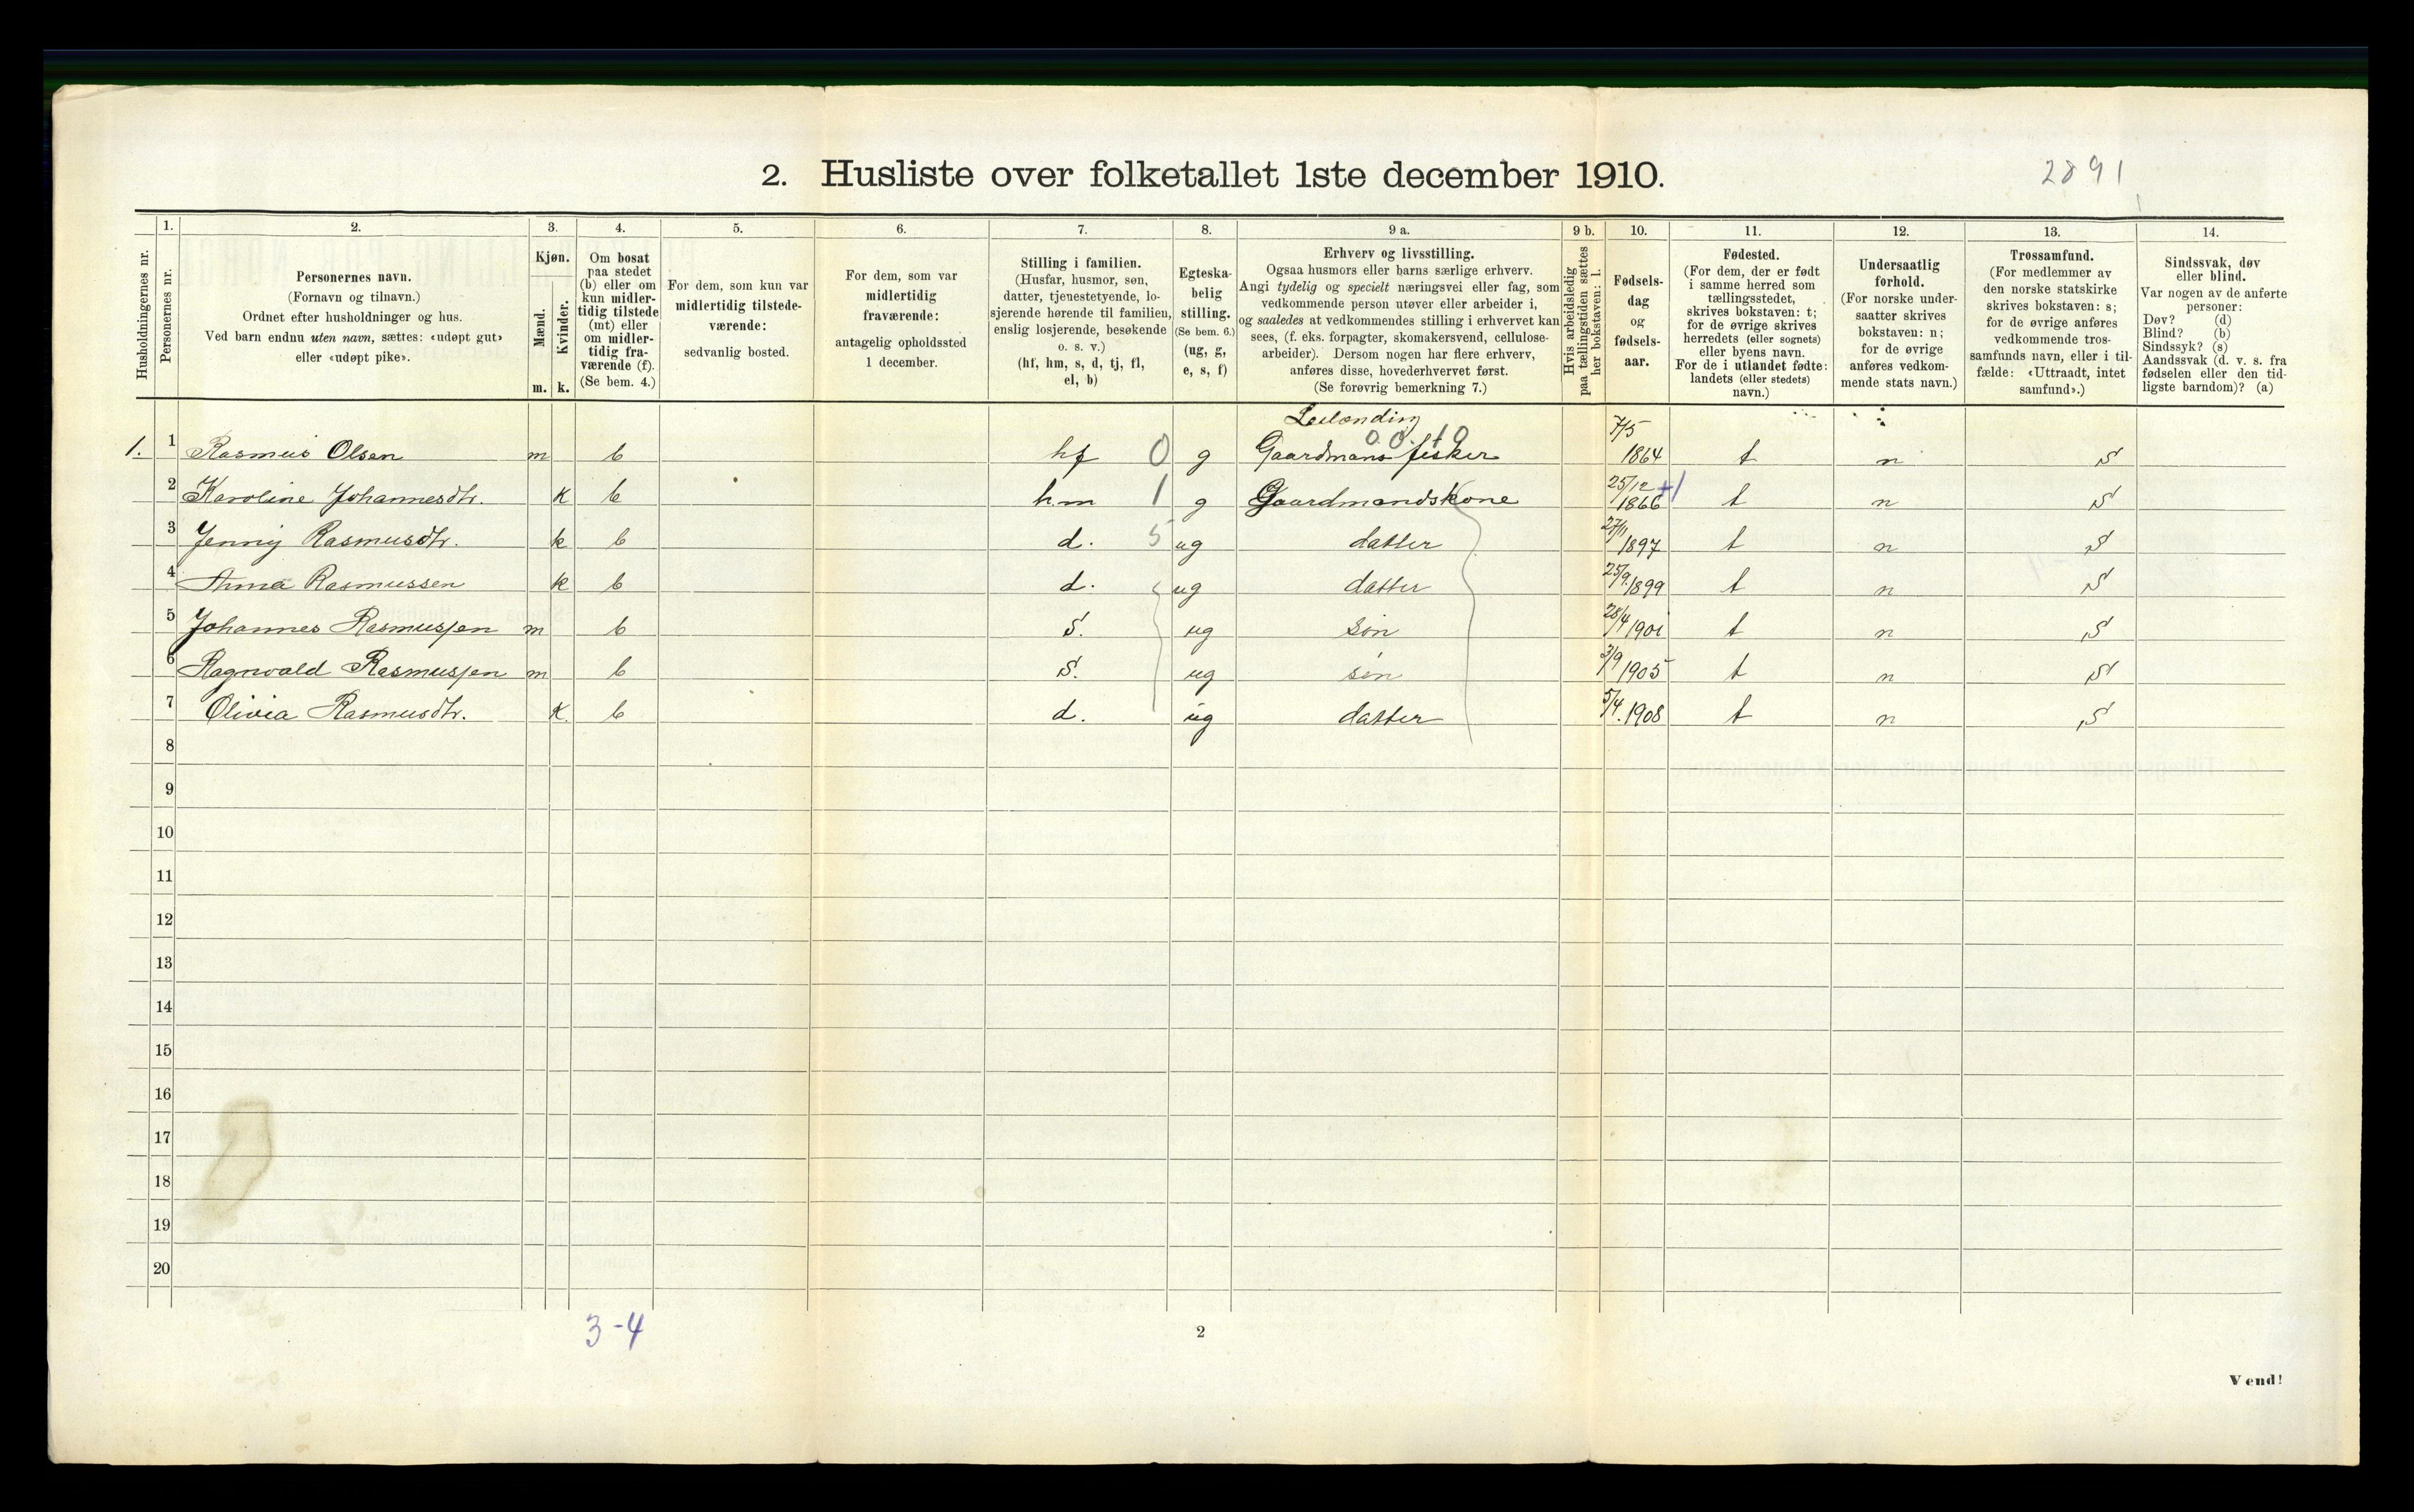 2. Husliste over folketallet 1ste december 1910.
2891
Husholdningernes nr.
1.
Personernes nr.
2.
Personernes navn.
(Fornavn og tilnavn.)
Ordnet efter husholdninger og hus.
Ved barn endnu uten navn, sættes: «udøpt gut»
eller «udøpt pike».
3.
Kjøn.
Mænd.
Kvinder.
m. k.
4.
Om bosat
paa stedet
(b) eller om
kun midler-
tidig tilstede
(mt) eller
om midler-
tidig fra-
værende (f).
(Se bem. 4.)
5.
For dem, som kun var
midlertidig tilstede-
værende:
sedvanlig bosted.
6.
For dem, som var
midlertidig
fraværende:
antagelig opholdssted
1 december.
7.
Stilling i familien.
(Husfar, husmor, søn,
datter, tjenestetyende, lo-
sjerende hørende til familien,
enslig losjerende, besøkende
o. s. v.)
(hf, hm, s, d, tj, fl,
el, b)
8.
Egteska-
belig
stilling.
(Se bem. 6.)
(ug, g,
e, s, f)
9 a.
Erhverv og livsstilling.
Ogsaa husmors eller barns særlige erhverv.
Angi tydelig og specielt næringsvei eller fag, som
vedkommende person utøver eller arbeider i,
og saaledes at vedkommendes stilling i erhvervet kan
sees, (f. eks. forpagter, skomakersvend, cellulose-
arbeider). Dersom nogen har flere erhverv,
anføres disse, hovederhvervet først.
(Se forøvrig bemerkning 7.)
9 b.
Hvis arbeidsledig
paa tællingstiden sættes
her bokstaven: l.
10.
Fødsels-
dag
og
fødsels-
aar.
11.
Fødested.
(For dem, der er født
i samme herred som
tællingsstedet,
skrives bokstaven: t;
for de øvrige skrives
herredets (eller sognets)
eller byens navn.
For de i utlandet fødte:
landets (eller stedets)
navn.)
12.
Undersaatlig
forhold.
(For norske under-
saatter skrives
bokstaven: n;
for de øvrige
anføres vedkom-
mende stats navn.)
13.
Trossamfund.
(For medlemmer av
den norske statskirke
skrives bokstaven: s;
for de øvrige anføres
vedkommende tros-
samfunds navn, eller i til-
fælde: «Uttraadt, intet
samfund».)
14.
Sindssvak, døv
eller blind.
Var nogen av de anførte
personer:
Døv? (d)
Blind? (b)
Sindssyk? (s)
Aandssvak (d. v. s. fra
fødselen eller den tid-
ligste barndom)? (a)
Leilending
1. 1 Rasmus Olsen m b hf 0 g Gaardmans fisker 7/5 1864 t n S
2 Karoline Johannesdtr. k b h.m 1 g Gaardmandskone 25/12 1866 t n S
3 Jenny Rasmusdtr. k b d. 5 ug datter 27/11 1897 t n S
4 Anna Rasmussen k b d. ug datter 25/9 1899 t n S
5 Johannes Rasmussen m b S. ug søn 28/4 1901 t n S
6 Ragnvald Rasmussen m b S. ug søn 3/9 1905 t n S
7 Olivia Rasmusdtr. K. b d. ug datter 5/4. 1908 t n S
8
9
10
11
12
13
14
15
16
17
18
19
20
3-4
2
Vend!